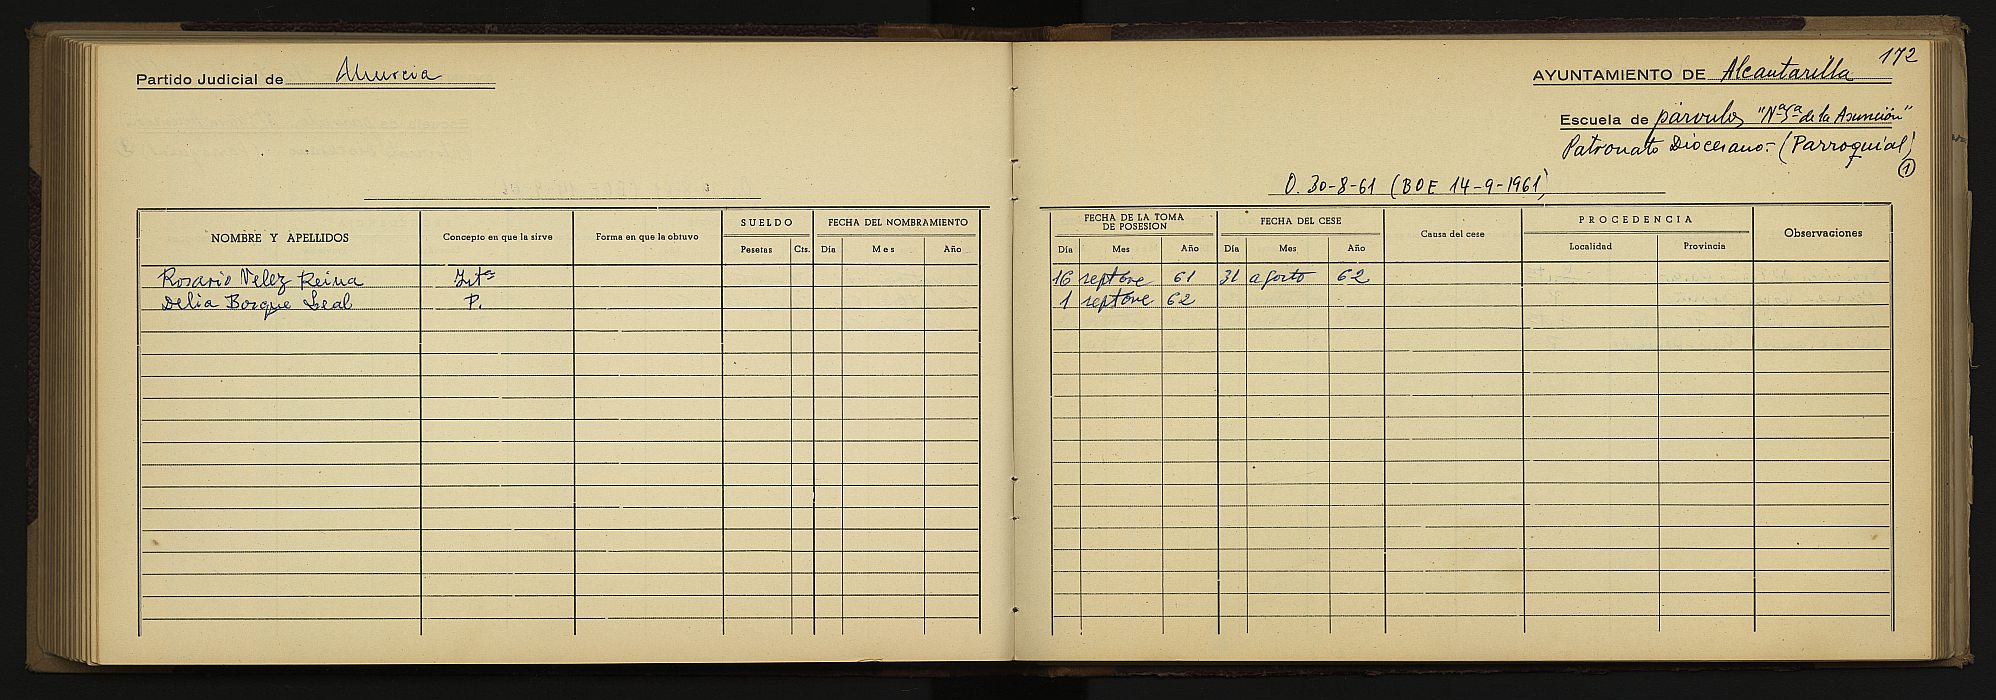 Partido Judicial de Murcia
172
AYUNTAMIENTO DE Alcantarilla
Escuela de párvulos "Nª Sª de la Asunción"
Patronato Diocesano.- (Parroquial)
1
O. 30-8-61 (BOE 14-9-1961)
NOMBRE Y APELLIDOS Concepto en que la sirve Forma en que la obtuvo SUELDO FECHA DEL NOMBRAMIENTO
Pesetas Cts. Día Mes Año
FECHA DE LA TOMA DE POSESION FECHA DEL CESE Causa del cese PROCEDENCIA Observaciones
Día Mes Año Día Mes Año Localidad Provincia
Rosario Velez Reina Intª 16 septbre 61 31 agosto 62
Delia Borque Leal P. 1 septbre 62